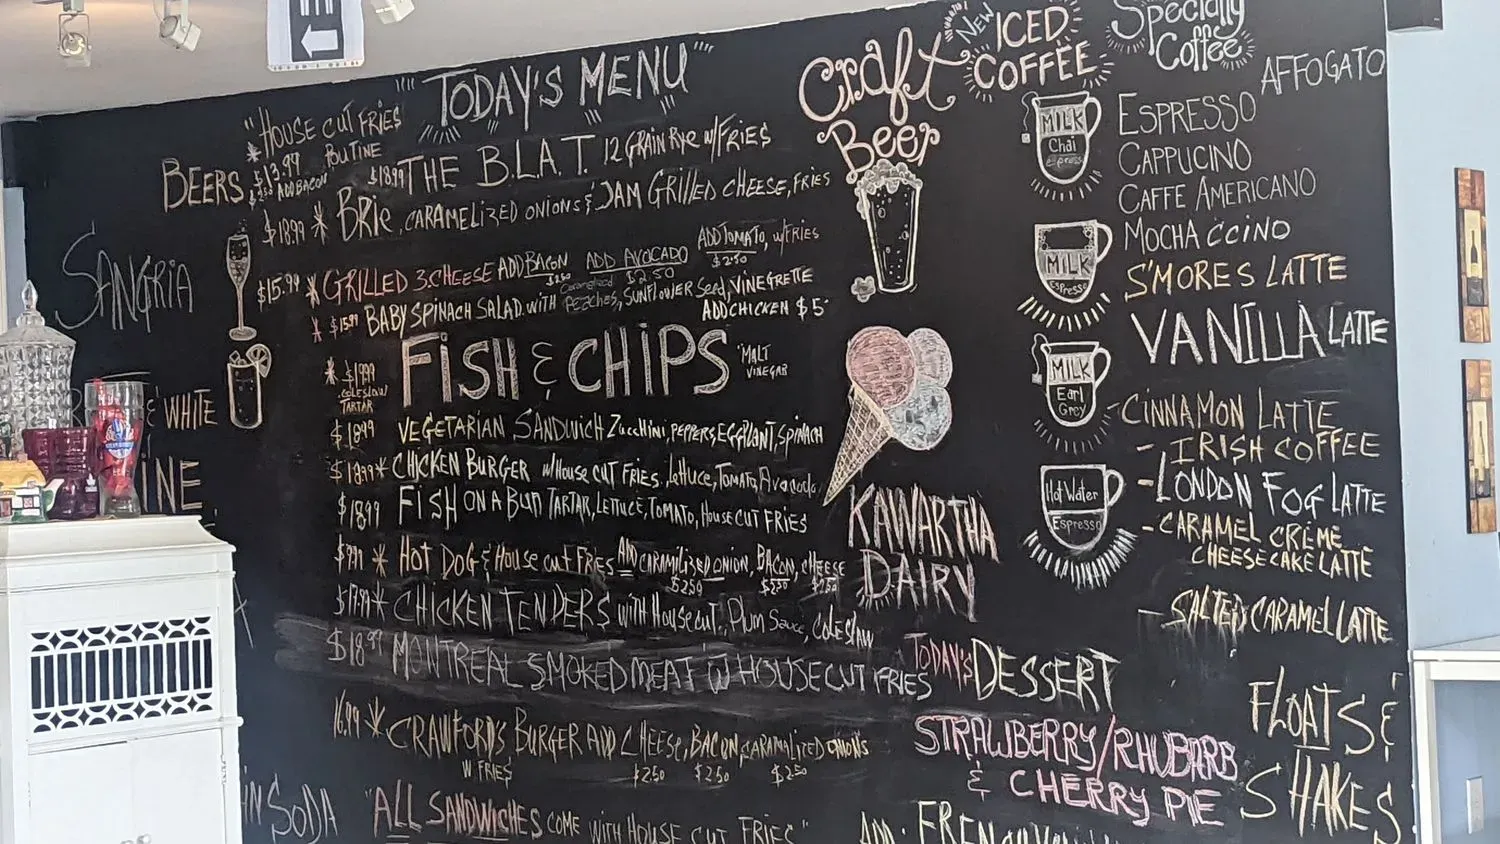 TODAY'S MENU
"HOUSE CUT FRIES
* $13.99 POUTINE
$2.50 ADD BACON
BEERS
$18.99 THE B.L.A.T. 12 GRAIN RYE W/FRIES
$18.99 * BRIE, CARAMELIZED ONIONS & JAM GRILLED CHEESE, FRIES
SANGRIA
$15.99 * GRILLED 3 CHEESE ADD BACON $2.50 ADD AVOCADO $2.50 ADD TOMATO, W/FRIES $2.50
* $15.99 BABY SPINACH SALAD WITH Caramelized PEACHES, SUNFLOWER Seed, VINEGRETTE
ADD CHICKEN $5
* $19.99 FISH & CHIPS "MALT VINEGAR
COLESLAW
TARTAR
& WHITE
$18.99 VEGETARIAN SANDWICH Zucchini, PEPPERS, EGGPLANT, SPINACH
$18.99 * CHICKEN BURGER W/HOUSE CUT FRIES, Lettuce, TOMATO, Avocado
INE
$18.99 FISH ON A BUN TARTAR, LETTUCE, TOMATO, HOUSE CUT FRIES
$9.91 * HOT DOG & HOUSE CUT FRIES ADD CARAMILIZED ONION, BACON, CHEESE
$2.50 $2.50 $2.50
$17.99 * CHICKEN TENDERS WITH HOUSE CUT, Plum Sauce, COLESLAW
$18.99 MONTREAL SMOKED MEAT W HOUSE CUT FRIES
16.99 * CRAWFORD'S BURGER ADD CHEESE, BACON, CARAMALIZED ONIONS
W FRIES $2.50 $2.50 $2.50
IN SODA
"ALL SANDWICHES COME WITH HOUSE CUT FRIES"
Craft
Beer
KAWARTHA
DAIRY
TODAY'S DESSERT
STRAWBERRY/RHUBARB
& CHERRY PIE
ADD
NEW
ICED
COFFEE
Specialty
Coffee
AFFOGATO
MILK
Chai
espresso
ESPRESSO
CAPPUCINO
CAFFE AMERICANO
MOCHACCINO
MILK
Espresso
S'MORES LATTE
VANILLA LATTE
MILK
Earl
Grey
CINNAMON LATTE
- IRISH COFFEE
Hot Water
Espresso
- LONDON FOG LATTE
- CARAMEL CRÈME
CHEESECAKE LATTE
- SALTED CARAMEL LATTE
FLOATS &
SHAKES